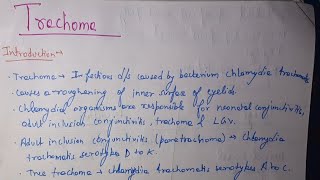 Trachoma
Introduction →
• Trachoma → Infectious d/s caused by bacterium chlamydia trachomatis
• causes a roughening of inner surface of eyelids.
• Chlamydial organisms are responsible for neonatal conjunctivitis,
adult inclusion conjunctivitis, trachoma & LGV.
• Adult inclusion conjunctivitis (paratrachoma) → Chlamydia
trachomatis serotypes D to K.
• True trachoma → chlamydia trachomatis serotypes A to C.